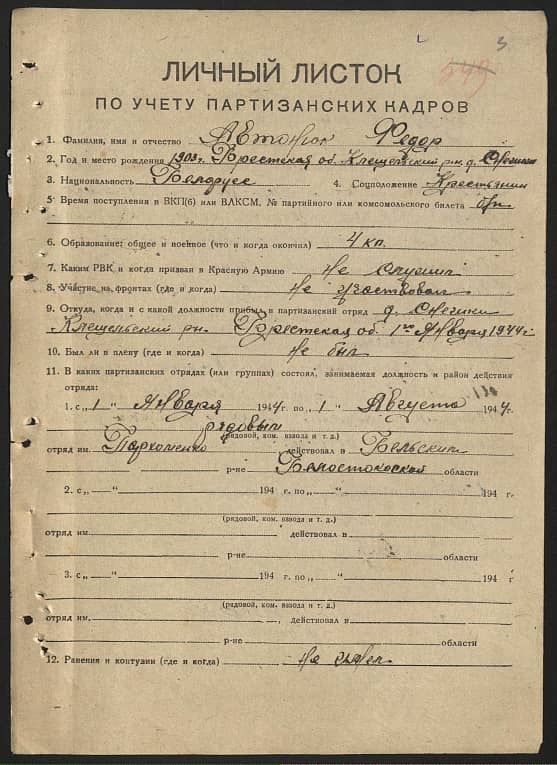 3
549
ЛИЧНЫЙ ЛИСТОК
ПО УЧЕТУ ПАРТИЗАНСКИХ КАДРОВ
1. Фамилия, имя и отчество Автонюк Федор
2. Год и место рождения 1903 г. Брестская об. Клещельский рн. д.
3. Национальность Белорусс 4. Соцположение Крестьянин
5. Время поступления в ВКП(б) или ВЛКСМ, № партийного или комсомольского билета б/п
6. Образование: общее и военное (что и когда окончил) 4 кл.
7. Каким РВК и когда призван в Красную Армию Не служил
8. Участие на фронтах (где и когда) Не участвовал
9. Откуда, когда и с какой должности прибыл в партизанский отряд д.
Клещельский рн. Брестская об. 1го Января 1944 г
10. Был ли в плену (где и когда) Не был
11. В каких партизанских отрядах (или группах) состоял, занимаемая должность и район действия
отряда:
1. с „ 1 “ Января 1944 г. по „ 1 “ Августа 1944 г.
рядовым
(рядовой, ком. взвода и т. д.)
отряд им. Пархоменко действовал в Бельским
р-не Белостокоской области
2. с „ “ 194 г. по „ “ 194 г.
(рядовой, ком. взвода и т. д.)
отряд им. действовал в
р-не области
3. с „ “ 194 г. по „ “ 194 г
(рядовой, ком. взвода и т. д.)
отряд им. , действовал в
р-не области
12. Ранения и контузии (где и когда) Не имел